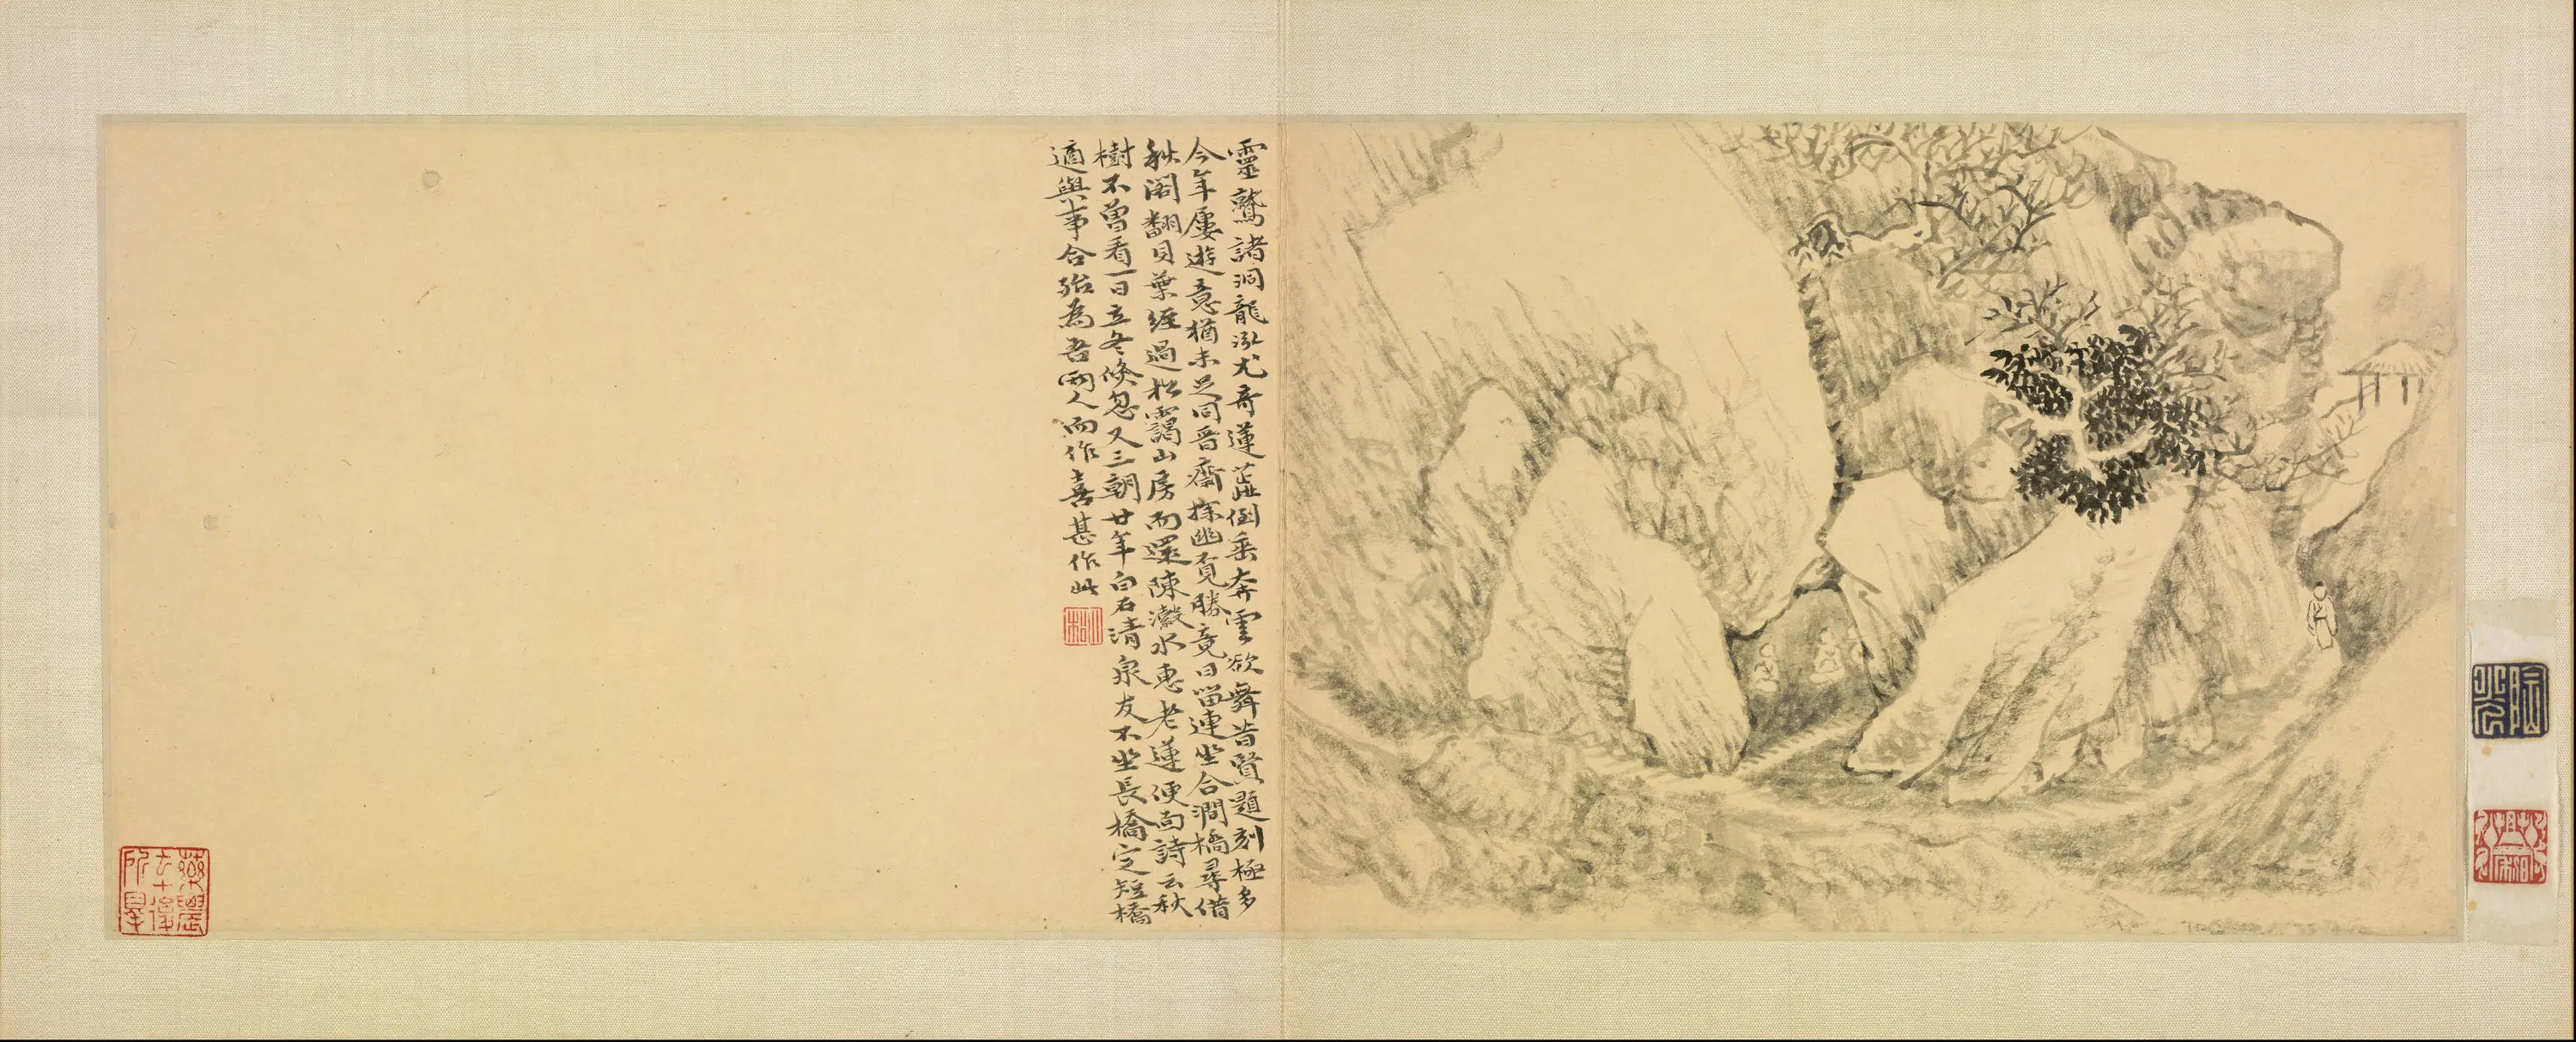 靈鷲諸洞龍泓尤奇蓮蕋倒垂奔雲欲舞昔賢題刻極多
今年屢遊意猶未足同晋齋探幽覓勝竟日留連坐合澗橋尋借
秋閣翻貝葉經過松靄山房而還陳瀫水惠老蓮便面詩云秋
樹不曾看一日立冬倐忽又三朝廿年白石清泉友不坐長橋定短橋
適與事合殆為吾兩人而作喜甚作此